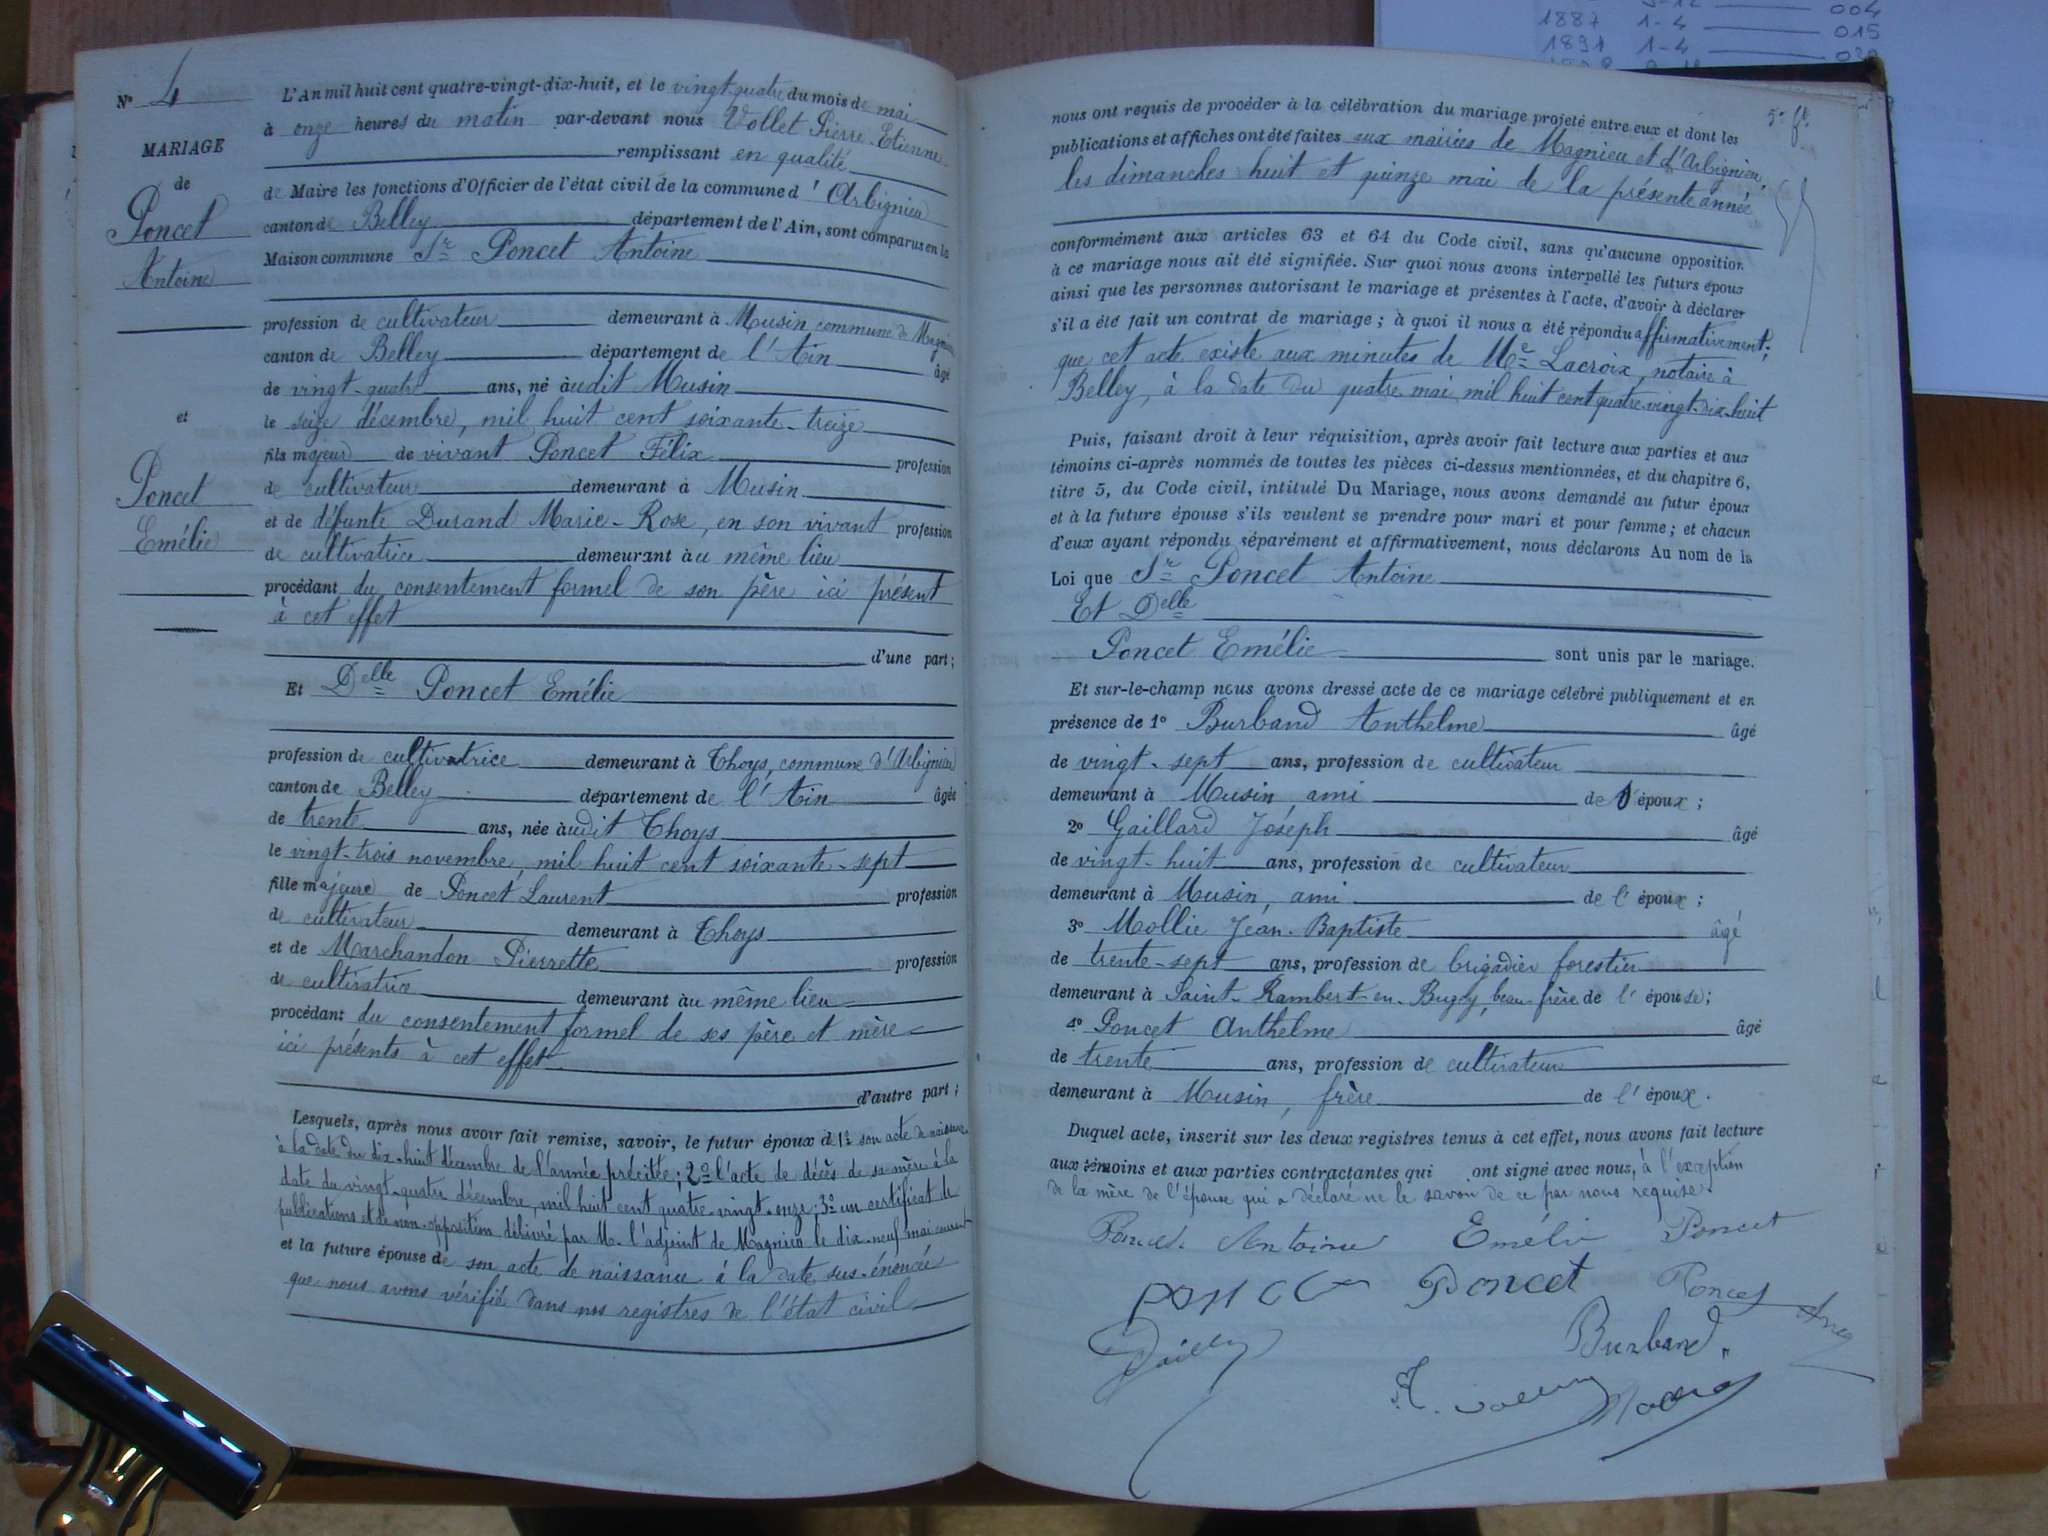 004
1887 1-4 015
1891 1-4
N° 4
MARIAGE
de
Poncet
Antoine
et
Poncet
Emélie
L'An mil huit cent quatre-vingt-dix-huit, et le vingt-quatre du mois de mai
à onze heures du matin par-devant nous Vollet Pierre-Etienne
remplissant en qualité
de Maire les fonctions d'Officier de l'état civil de la commune d'Arbignieu
canton de Belley département de l'Ain, sont comparus en la
Maison commune Sr Poncet Antoine
profession de cultivateur demeurant à Musin commune de Magnieu
canton de Belley département de l'Ain âgé
de vingt-quatre ans, né audit Musin
le seize décembre, mil huit cent soixante-treize
fils majeur de vivant Poncet Félix profession
de cultivateur demeurant à Musin
et de défunte Durand Marie-Rose, en son vivant profession
de cultivatrice demeurant au même lieu
procédant du consentement formel de son père ici présent
à cet effet
d'une part;
Et Delle Poncet Emélie
profession de cultivatrice demeurant à Thoys, commune d'Arbignieu
canton de Belley département de l'Ain âgée
de trente ans, née audit Thoys
le vingt-trois novembre, mil huit cent soixante-sept
fille majeure de Poncet Laurent profession
de cultivateur demeurant à Thoys
et de Marchandon Pierrette profession
de cultivatrice demeurant au même lieu
procédant du consentement formel de ses père et mère
ici présents à cet effet
d'autre part;
Lesquels, après nous avoir fait remise, savoir, le futur époux de 1° son acte de naissance
à la date du dix-huit décembre de l'année précitée; 2° l'acte de décès de sa mère à la
date du vingt-quatre décembre, mil huit cent quatre-vingt-onze; 3° un certificat de
publications et de non-opposition délivré par M. l'adjoint de Magnieu le dix-neuf mai courant
et la future épouse de son acte de naissance à la date sus-énoncée
que nous avons vérifié dans nos registres de l'état civil
nous ont requis de procéder à la célébration du mariage projeté entre eux et dont les
publications et affiches ont été faites aux mairies de Magnieu et d'Arbignieu,
les dimanches huit et quinze mai de la présente année
conformément aux articles 63 et 64 du Code civil, sans qu'aucune opposition
à ce mariage nous ait été signifiée. Sur quoi nous avons interpellé les futurs époux
ainsi que les personnes autorisant le mariage et présentes à l'acte, d'avoir à déclarer
s'il a été fait un contrat de mariage; à quoi il nous a été répondu affirmativement;
que cet acte existe aux minutes de Me Lacroix, notaire à
Belley, à la date du quatre mai, mil huit cent quatre-vingt-dix-huit
Puis, faisant droit à leur réquisition, après avoir fait lecture aux parties et aux
témoins ci-après nommés de toutes les pièces ci-dessus mentionnées, et du chapitre 6,
titre 5, du Code civil, intitulé Du Mariage, nous avons demandé au futur époux
et à la future épouse s'ils veulent se prendre pour mari et pour femme; et chacun
d'eux ayant répondu séparément et affirmativement, nous déclarons Au nom de la
Loi que Sr Poncet Antoine
Et Delle
Poncet Emélie sont unis par le mariage.
Et sur-le-champ nous avons dressé acte de ce mariage célébré publiquement et en
présence de 1° Burband Anthelme âgé
de vingt-sept ans, profession de cultivateur
demeurant à Musin, ami de l'époux;
2° Gaillard Joseph âgé
de vingt-huit ans, profession de cultivateur
demeurant à Musin, ami de l'époux;
3° Mollie Jean-Baptiste âgé
de trente-sept ans, profession de brigadier forestier
demeurant à Saint-Rambert-en-Bugey, beau-frère de l'épouse;
4° Poncet Anthelme âgé
de trente ans, profession de cultivateur
demeurant à Musin, frère de l'époux.
Duquel acte, inscrit sur les deux registres tenus à cet effet, nous avons fait lecture
aux témoins et aux parties contractantes qui ont signé avec nous, à l'exception
de la mère de l'épouse qui a déclaré ne le savoir de ce par nous requise.
Poncet Antoine Emélie Poncet
Poncet Poncet
Burband